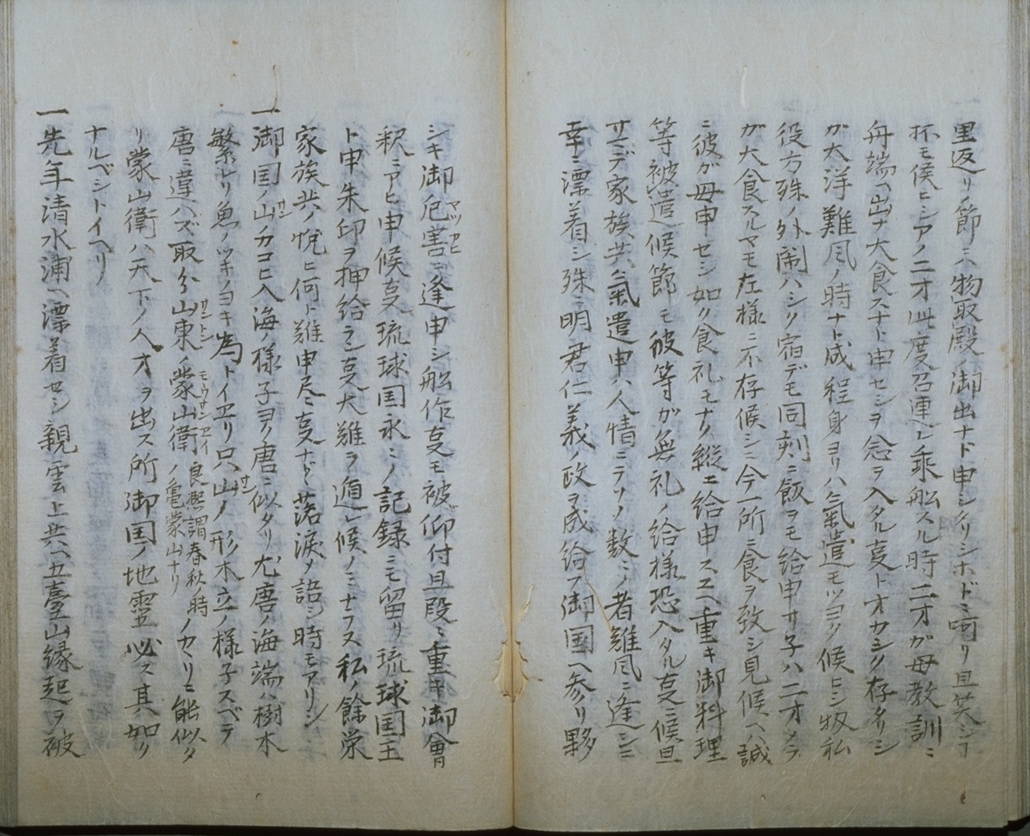 里返リノ節ニ物取殿ノ御出ナド申シイリシホドニ呵リ且笑シコ
杯モ侯ヒシアノ二才此度召連レ乘船スル時二才ガ母教訓ニ
舟端ヘ出ナ大食スナト申セシヲ念ヲ入タル㕝トオカシク存タリシ
ガ大洋難風ノ時ナト成程身ヨリハ氣遣モツヨク候ヒシ扨私
役方殊ノ外鬧ハシク宿デモ同刻ニ飯ヲモ給申サ子ハ二才メラ
ガ大食スルマモ左様ニ不存候シニ今一所ニ食ヲ致シ見候ヘハ誠
ニ彼ガ母申セシ如ク食礼モナク縦ニ給申スユヘ重キ御料理
等被遣候節モ彼等ガ無礼ノ給様恐入タル㕝ニ候且
サデ家族共氣遣申ハ人情ニテソノ数ニノ者難風ニ逢シニ
幸ニ漂着シ殊ニ明君仁義ノ政ヲ成給フ御国ヘ参リ夥
シキ御厄害ニ逢申シ船作㕝モ被仰付且段々重キ御會
釈ニアヒ申候㕝琉球国永々ノ記録ニモ留リ琉球国王
ト申朱印ヲ押給シ㕝大難ヲ遁レ候ノミナラス私ノ餘栄
家族共ノ悦ヒ何ト難申尽㕝ナド落涙ノ詰シ時モアリシ
一御国ノ山カコヒ入海ノ様子ヨク唐ニ似タリ尤唐ノ海端ハ樹木
繁レリ魚ノツキノヨキ為トイヱリ只山ノ形木立ノ様子スベテ
唐ニ違ハズ取分山東ノ蒙山衛ノセリニ能似タ
良熈謂春秋ノ時ノ亀蒙山ナリ
リ蒙山衛ハ天下ノ人才ヲ出ス所御国ノ地霊必ス其如ク
ナルベシトイヘリ
一先年清水浦ヘ漂着セシ親雲上共ハ五臺山縁起ヲ被